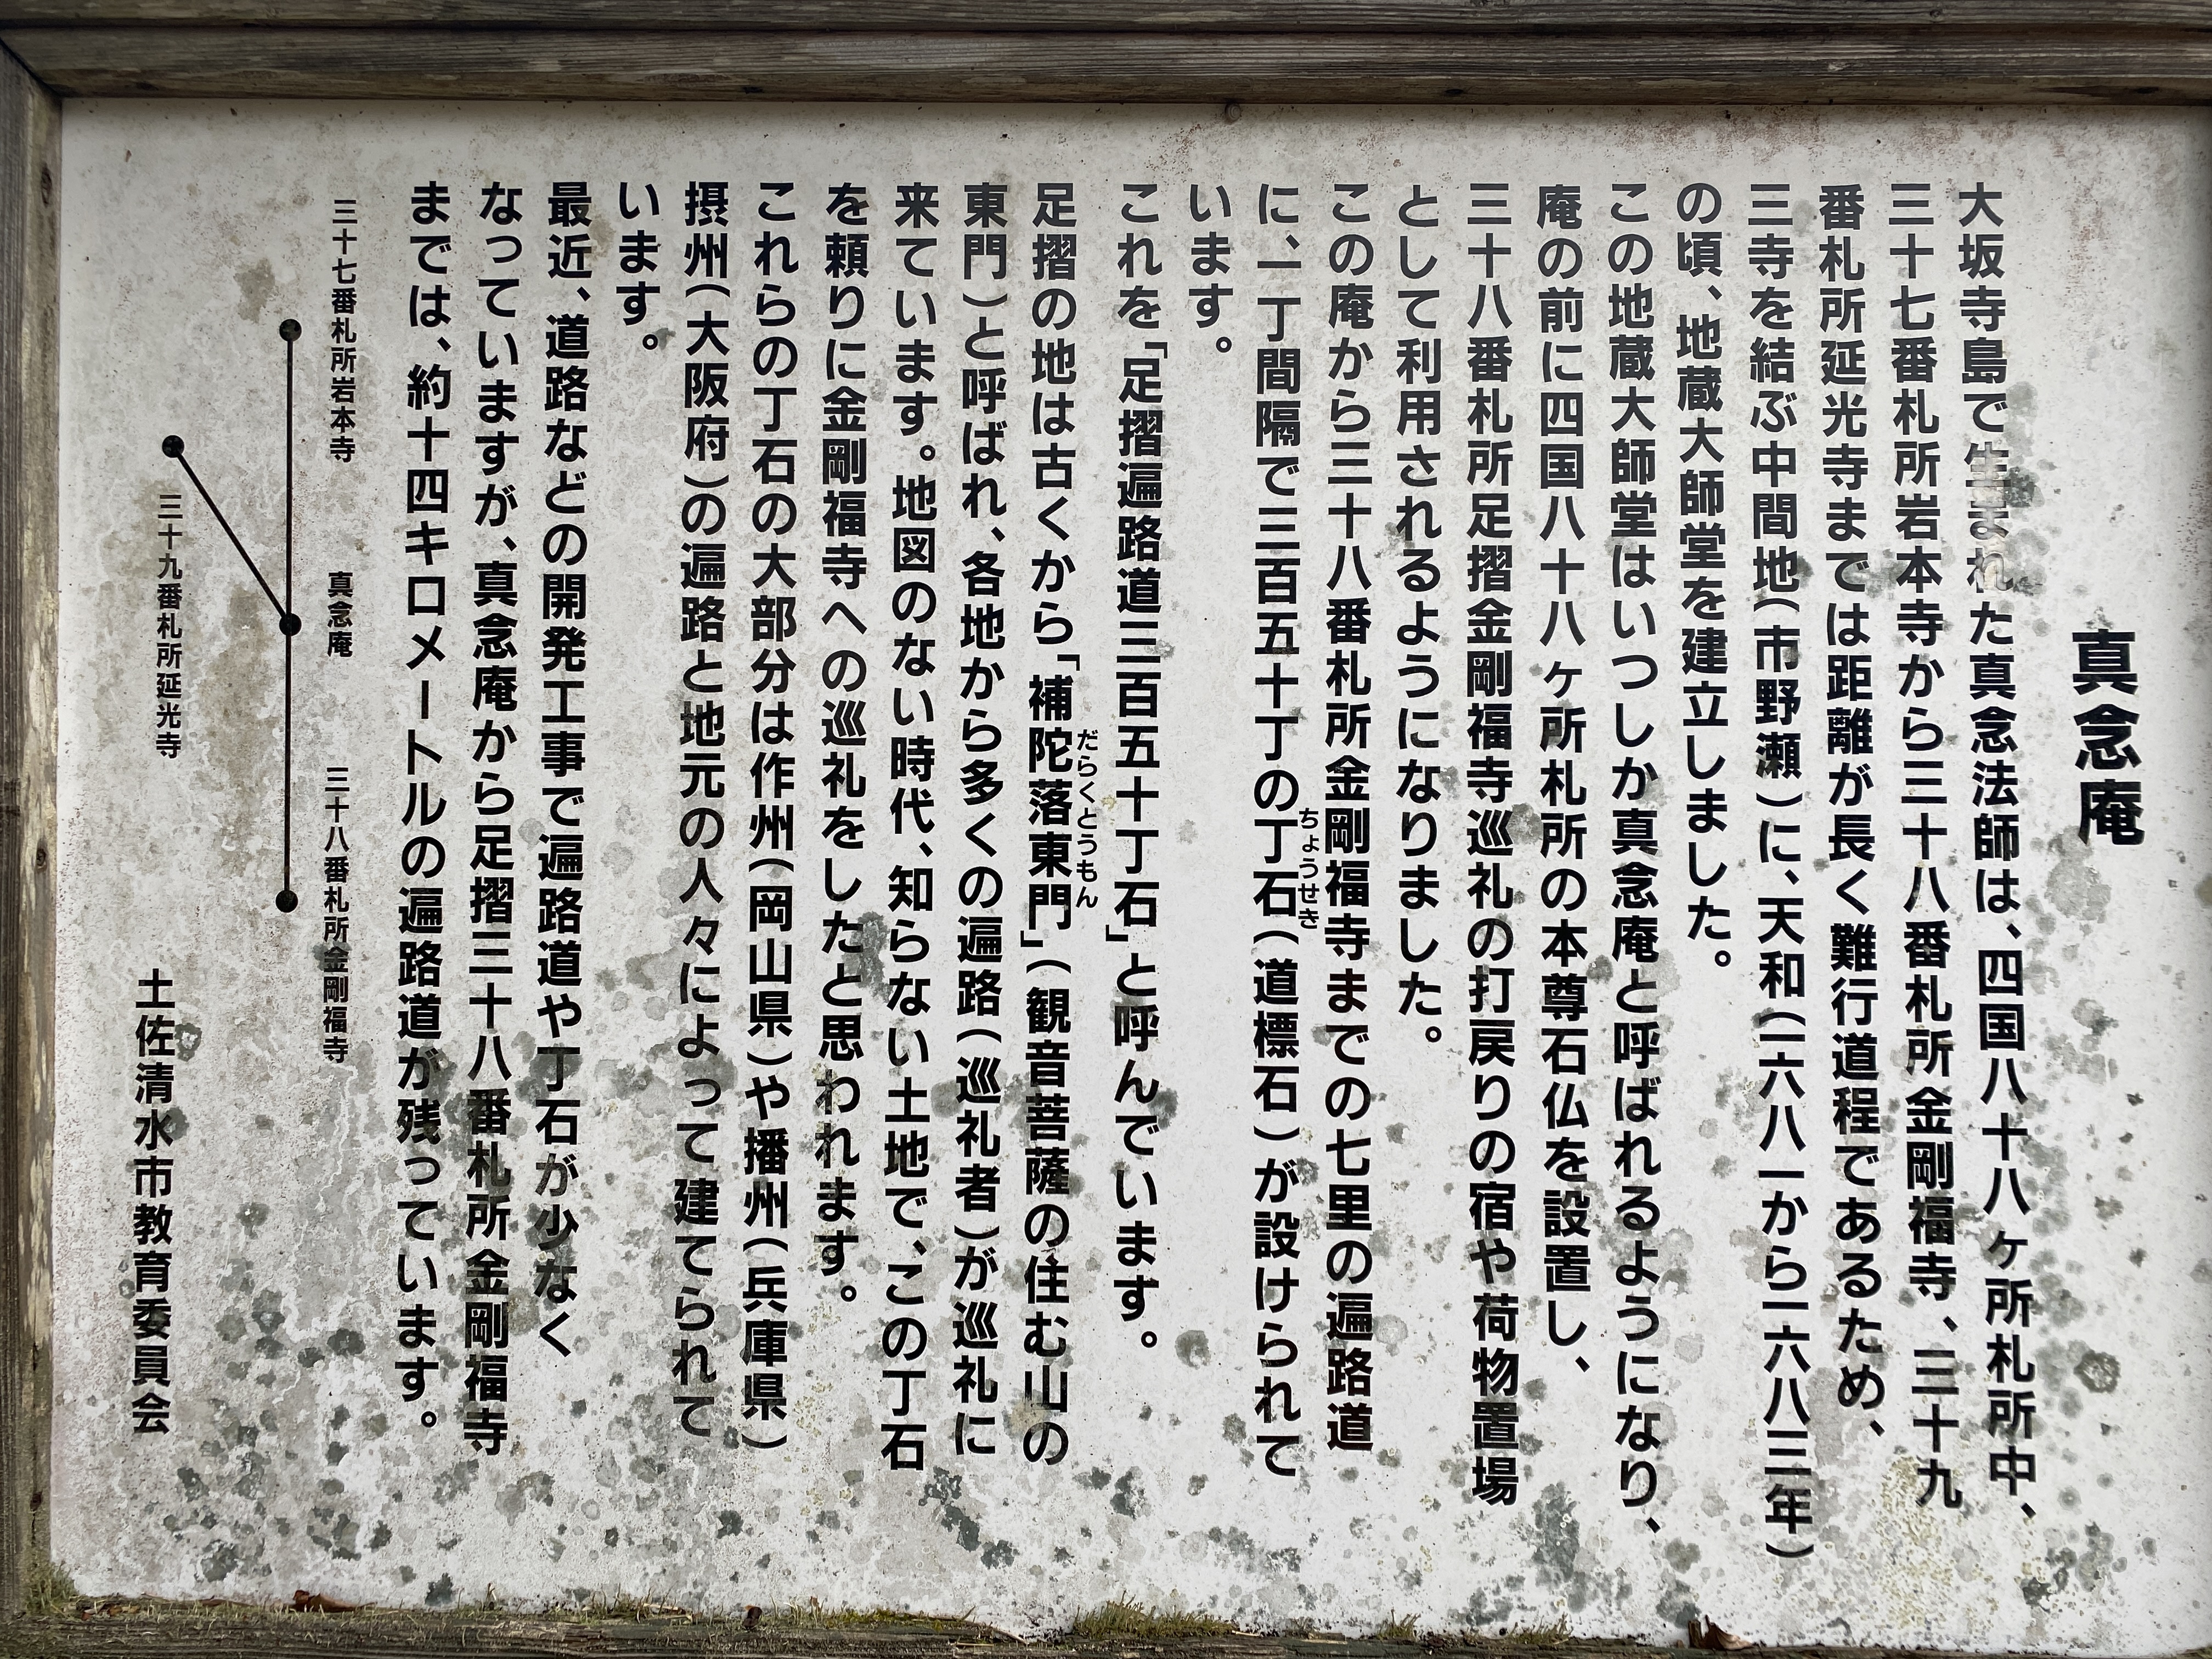 真念庵
大坂寺島で生まれた真念法師は、四国八十八ヶ所札所中、
三十七番札所岩本寺から三十八番札所金剛福寺、三十九
番札所延光寺までは距離が長く難行道程であるため、
三寺を結ぶ中間地(市野瀬)に、天和(一六八一から一六八三年)
の頃、地蔵大師堂を建立しました。
この地蔵大師堂はいつしか真念庵と呼ばれるようになり、
庵の前に四国八十八ヶ所札所の本尊石仏を設置し、
三十八番札所足摺金剛福寺巡礼の打戻りの宿や荷物置場
として利用されるようになりました。
この庵から三十八番札所金剛福寺までの七里の遍路道
に、一丁間隔で三百五十丁の丁石(道標石)が設けられて
ちょうせき
います。
これを「足摺遍路道三百五十丁石」と呼んでいます。
足摺の地は古くから「補陀落東門」(観音菩薩の住む山の
だらくとうもん
東門)と呼ばれ、各地から多くの遍路(巡礼者)が巡礼に
来ています。地図のない時代、知らない土地で、この丁石
を頼りに金剛福寺への巡礼をしたと思われます。
これらの丁石の大部分は作州(岡山県)や播州(兵庫県)
摂州(大阪府)の遍路と地元の人々によって建てられて
います。
最近、道路などの開発工事で遍路道や丁石が少なく
なっていますが、真念庵から足摺三十八番札所金剛福寺
までは、約十四キロメートルの遍路道が残っています。
三十七番札所岩本寺
真念庵
三十八番札所金剛福寺
三十九番札所延光寺
土佐清水市教育委員会